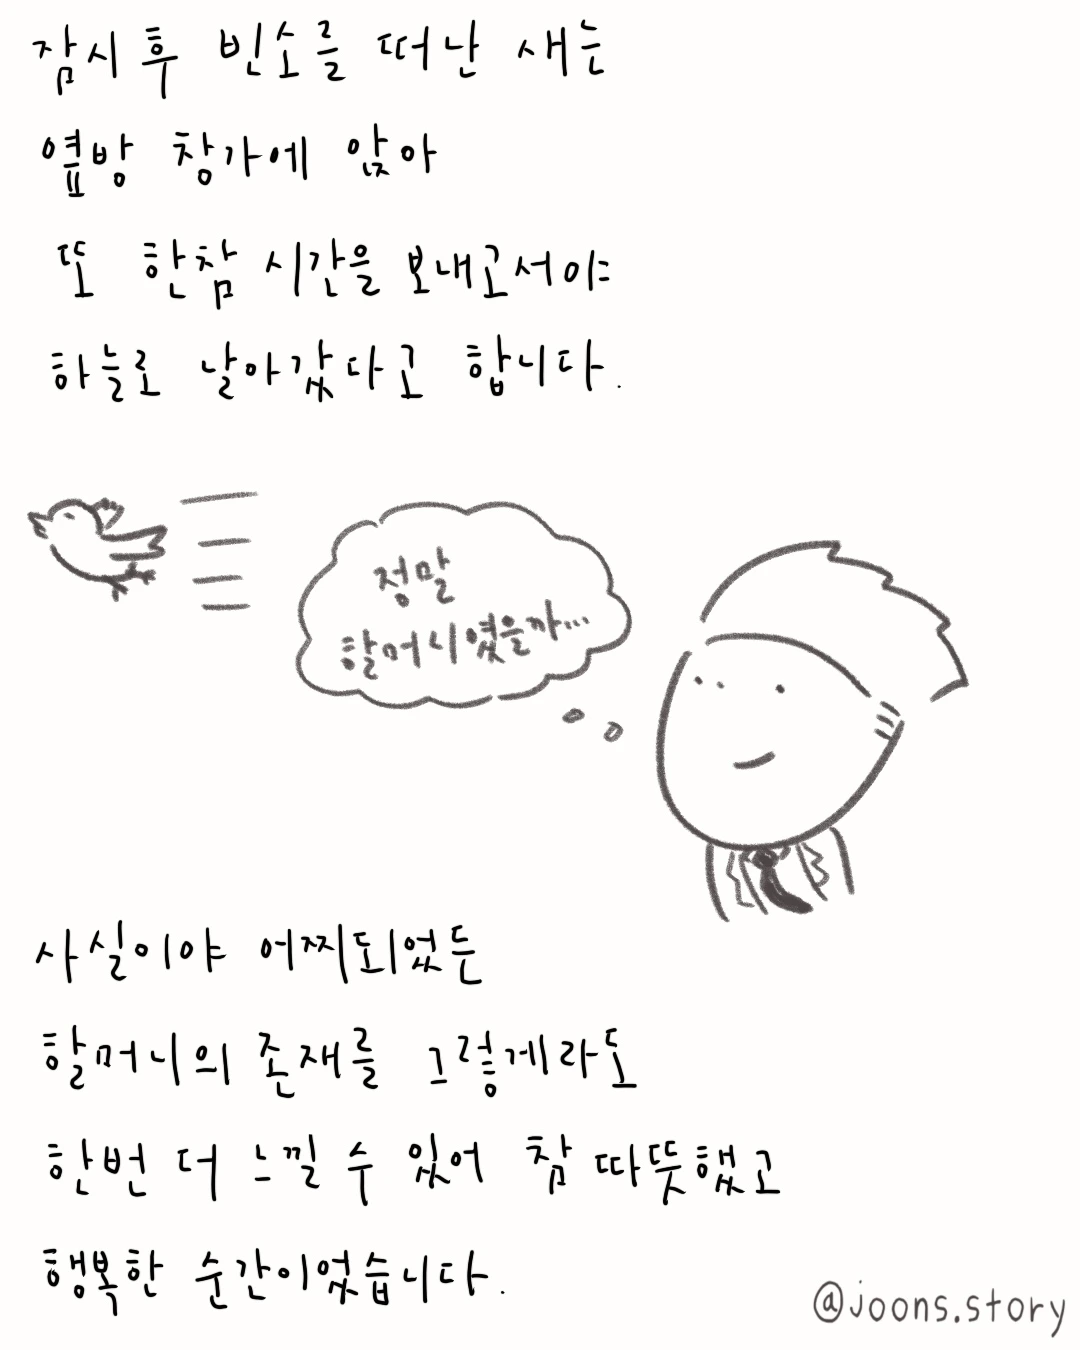 잠시 후 빈소를 떠난 새는
옆방 창가에 앉아
또 한참 시간을 보내고서야
하늘로 날아갔다고 합니다.
정말
할머니였을까...
사실이야 어찌되었든
할머니의 존재를 그렇게라도
한번 더 느낄 수 있어 참 따뜻했고
행복한 순간이었습니다.
@joons.story